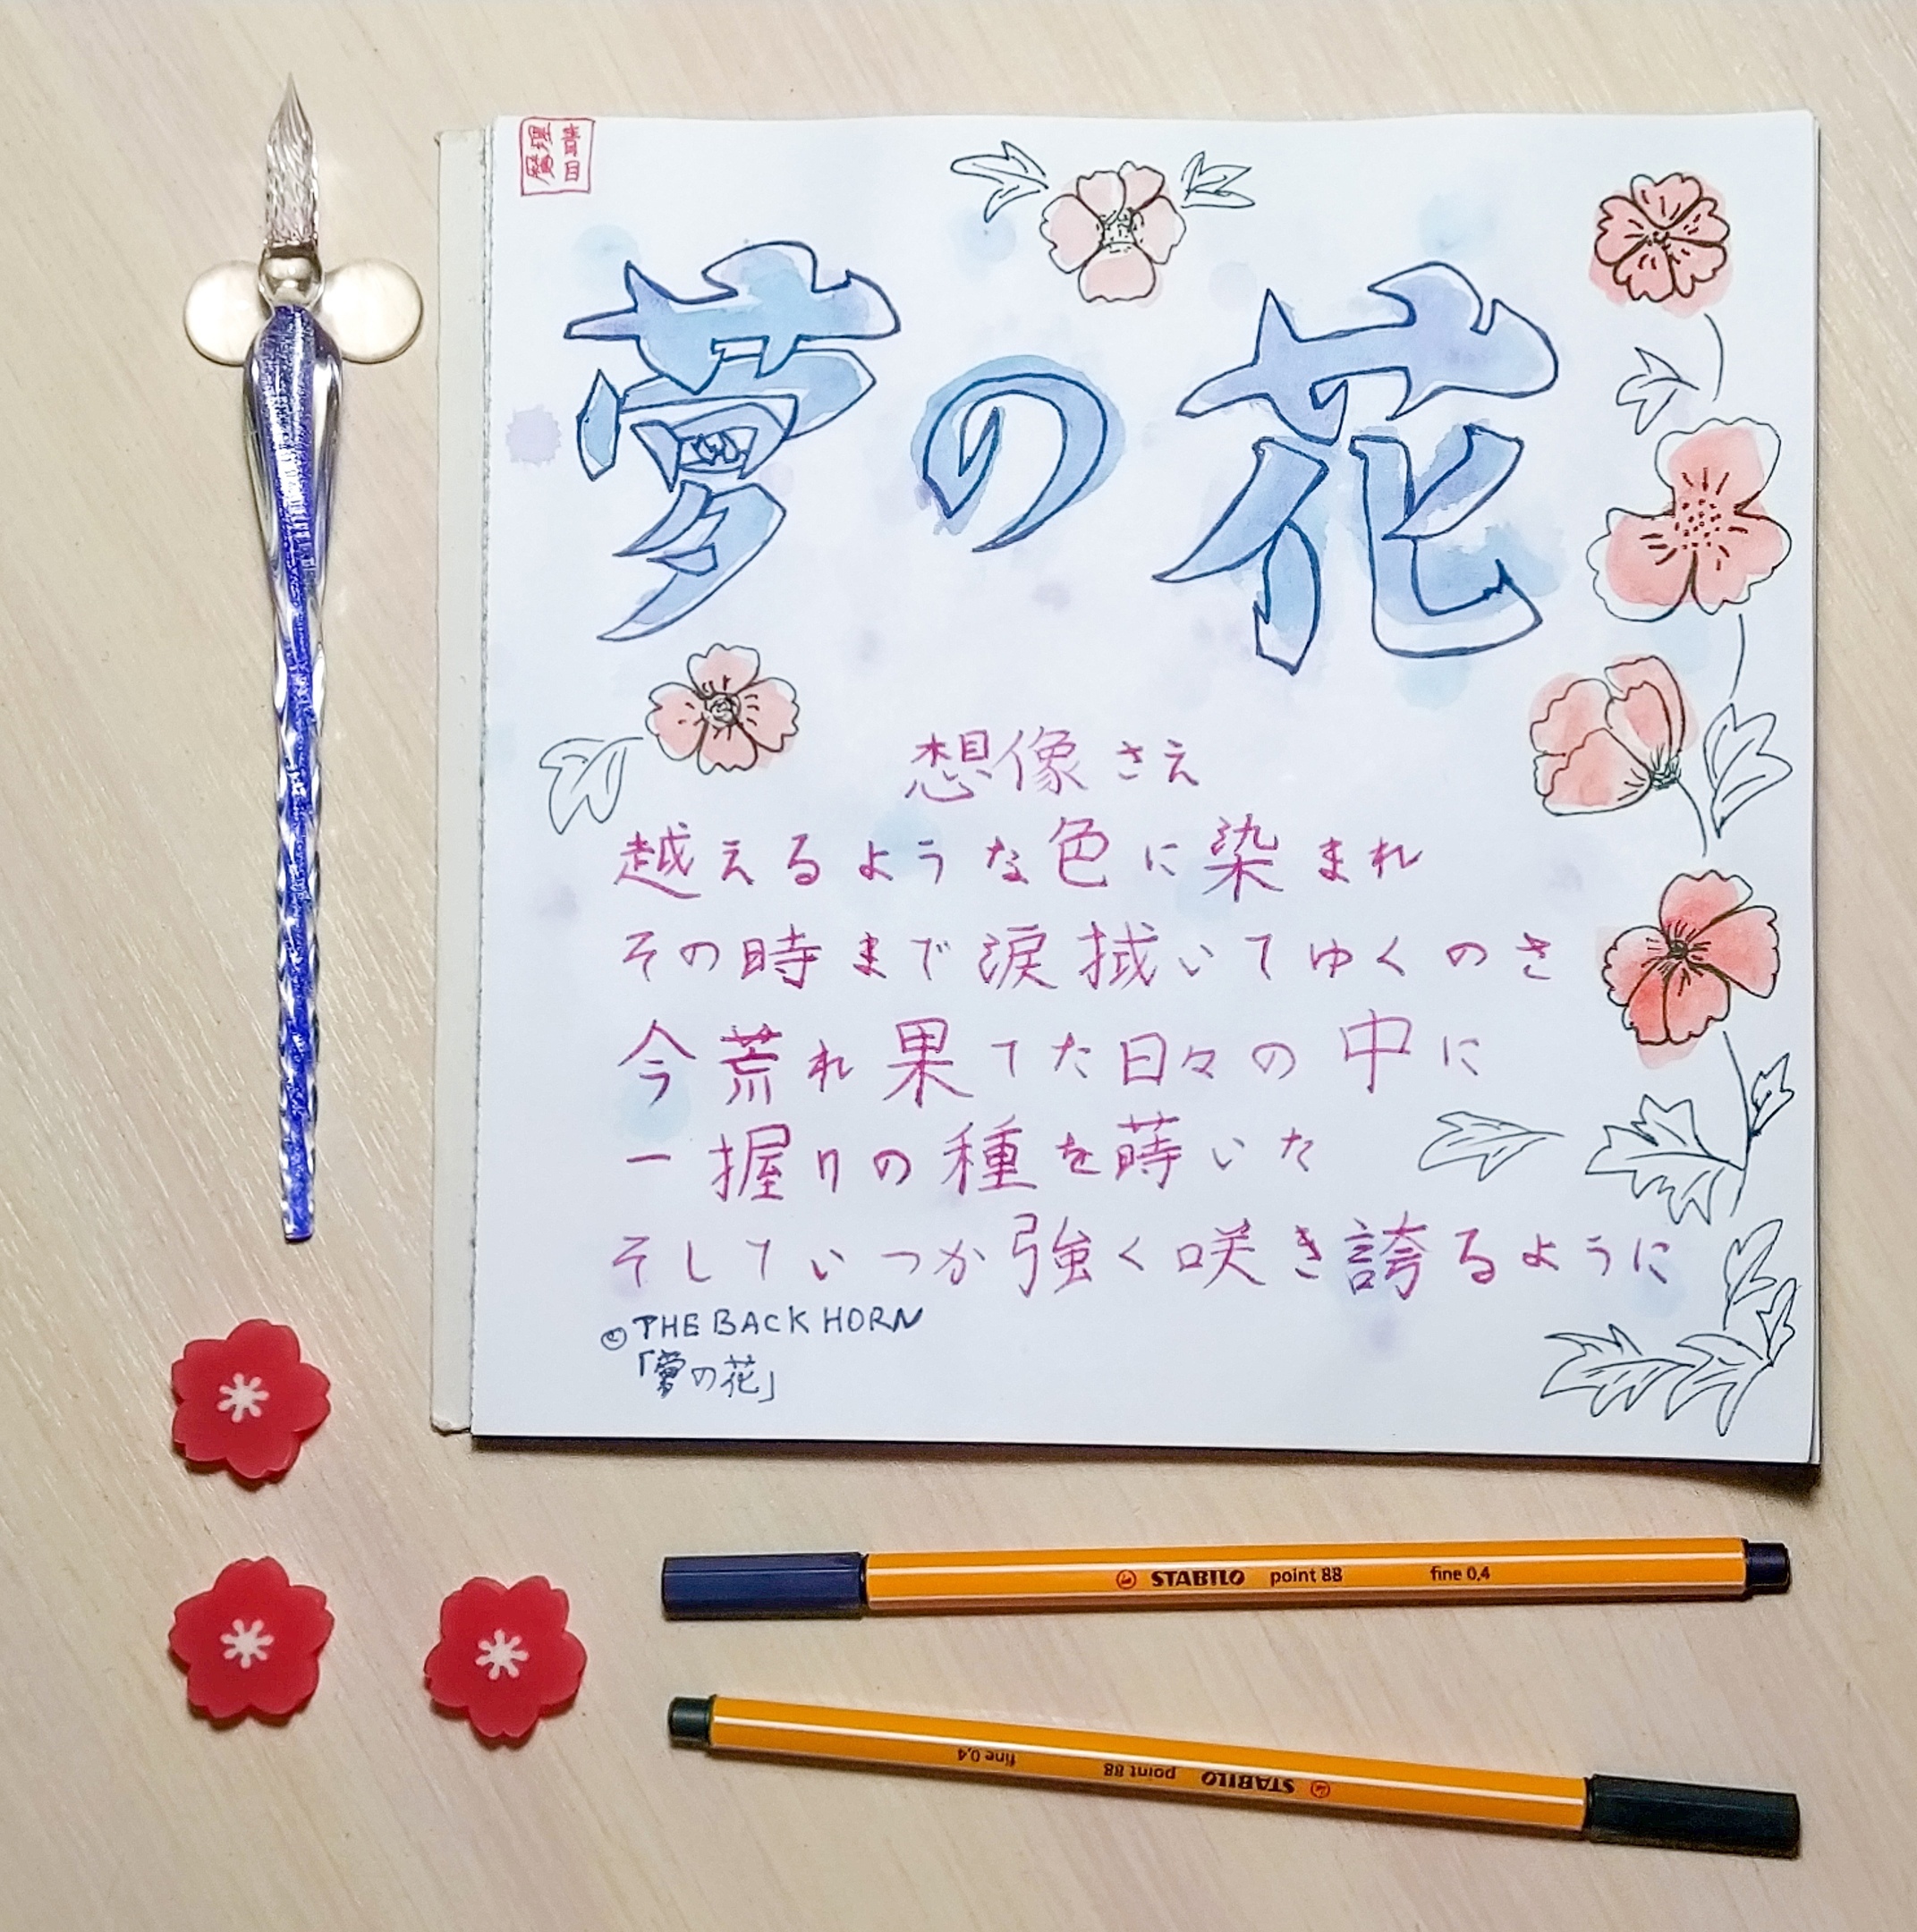 夢の花
想像さえ
越えるような色に染まれ
その時まで涙拭いてゆくのさ
今荒れ果てた日々の中に
一握りの種を蒔いた
そしていつか強く咲き誇るように
© THE BACK HORN
「夢の花」
STABILO point 88 fine 0,4
STABILO point 88 fine 0,4